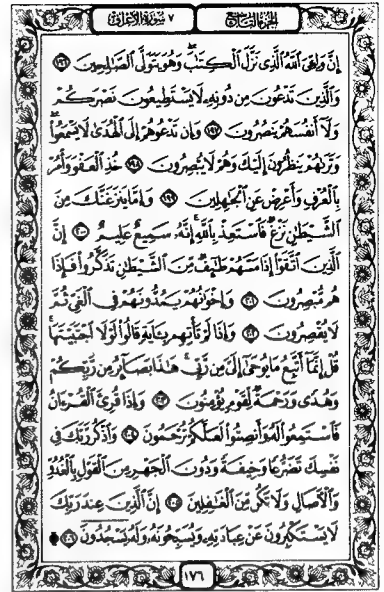 ٧ سورة الأعراف الجزء التاسع
إِنَّ وَلِـِّۧيَ ٱللَّهُ ٱلَّذِي نَزَّلَ ٱلْكِتَٰبَ وَهُوَ يَتَوَلَّى ٱلصَّٰلِحِينَ ١٩٦
وَٱلَّذِينَ تَدْعُونَ مِن دُونِهِۦ لَا يَسْتَطِيعُونَ نَصْرَكُمْ
وَلَآ أَنفُسَهُمْ يَنصُرُونَ ١٩٧ وَإِن تَدْعُوهُمْ إِلَى ٱلْهُدَىٰ لَا يَسْمَعُوا۟
وَتَرَىٰهُمْ يَنظُرُونَ إِلَيْكَ وَهُمْ لَا يُبْصِرُونَ ١٩٨ خُذِ ٱلْعَفْوَ وَأْمُرْ
بِٱلْعُرْفِ وَأَعْرِضْ عَنِ ٱلْجَٰهِلِينَ ١٩٩ وَإِمَّا يَنزَغَنَّكَ مِنَ
ٱلشَّيْطَٰنِ نَزْغٌ فَٱسْتَعِذْ بِٱللَّهِ إِنَّهُۥ سَمِيعٌ عَلِيمٌ ٢٠٠ إِنَّ
ٱلَّذِينَ ٱتَّقَوْا۟ إِذَا مَسَّهُمْ طَٰٓئِفٌ مِّنَ ٱلشَّيْطَٰنِ تَذَكَّرُوا۟ فَإِذَا
هُم مُّبْصِرُونَ ٢٠١ وَإِخْوَٰنُهُمْ يَمُدُّونَهُمْ فِي ٱلْغَيِّ ثُمَّ
لَا يُقْصِرُونَ ٢٠٢ وَإِذَا لَمْ تَأْتِهِم بِـَٔايَةٍ قَالُوا۟ لَوْلَا ٱجْتَبَيْتَهَا
قُلْ إِنَّمَآ أَتَّبِعُ مَا يُوحَىٰٓ إِلَيَّ مِن رَّبِّي هَٰذَا بَصَآئِرُ مِن رَّبِّكُمْ
وَهُدًى وَرَحْمَةٌ لِّقَوْمٍ يُؤْمِنُونَ ٢٠٣ وَإِذَا قُرِئَ ٱلْقُرْءَانُ
فَٱسْتَمِعُوا۟ لَهُۥ وَأَنصِتُوا۟ لَعَلَّكُمْ تُرْحَمُونَ ٢٠٤ وَٱذْكُر رَّبَّكَ فِي
نَفْسِكَ تَضَرُّعًا وَخِيفَةً وَدُونَ ٱلْجَهْرِ مِنَ ٱلْقَوْلِ بِٱلْغُدُوِّ
وَٱلْءَاصَالِ وَلَا تَكُن مِّنَ ٱلْغَٰفِلِينَ ٢٠٥ إِنَّ ٱلَّذِينَ عِندَ رَبِّكَ
لَا يَسْتَكْبِرُونَ عَنْ عِبَادَتِهِۦ وَيُسَبِّحُونَهُۥ وَلَهُۥ يَسْجُدُونَ ٢٠٦
١٧٦